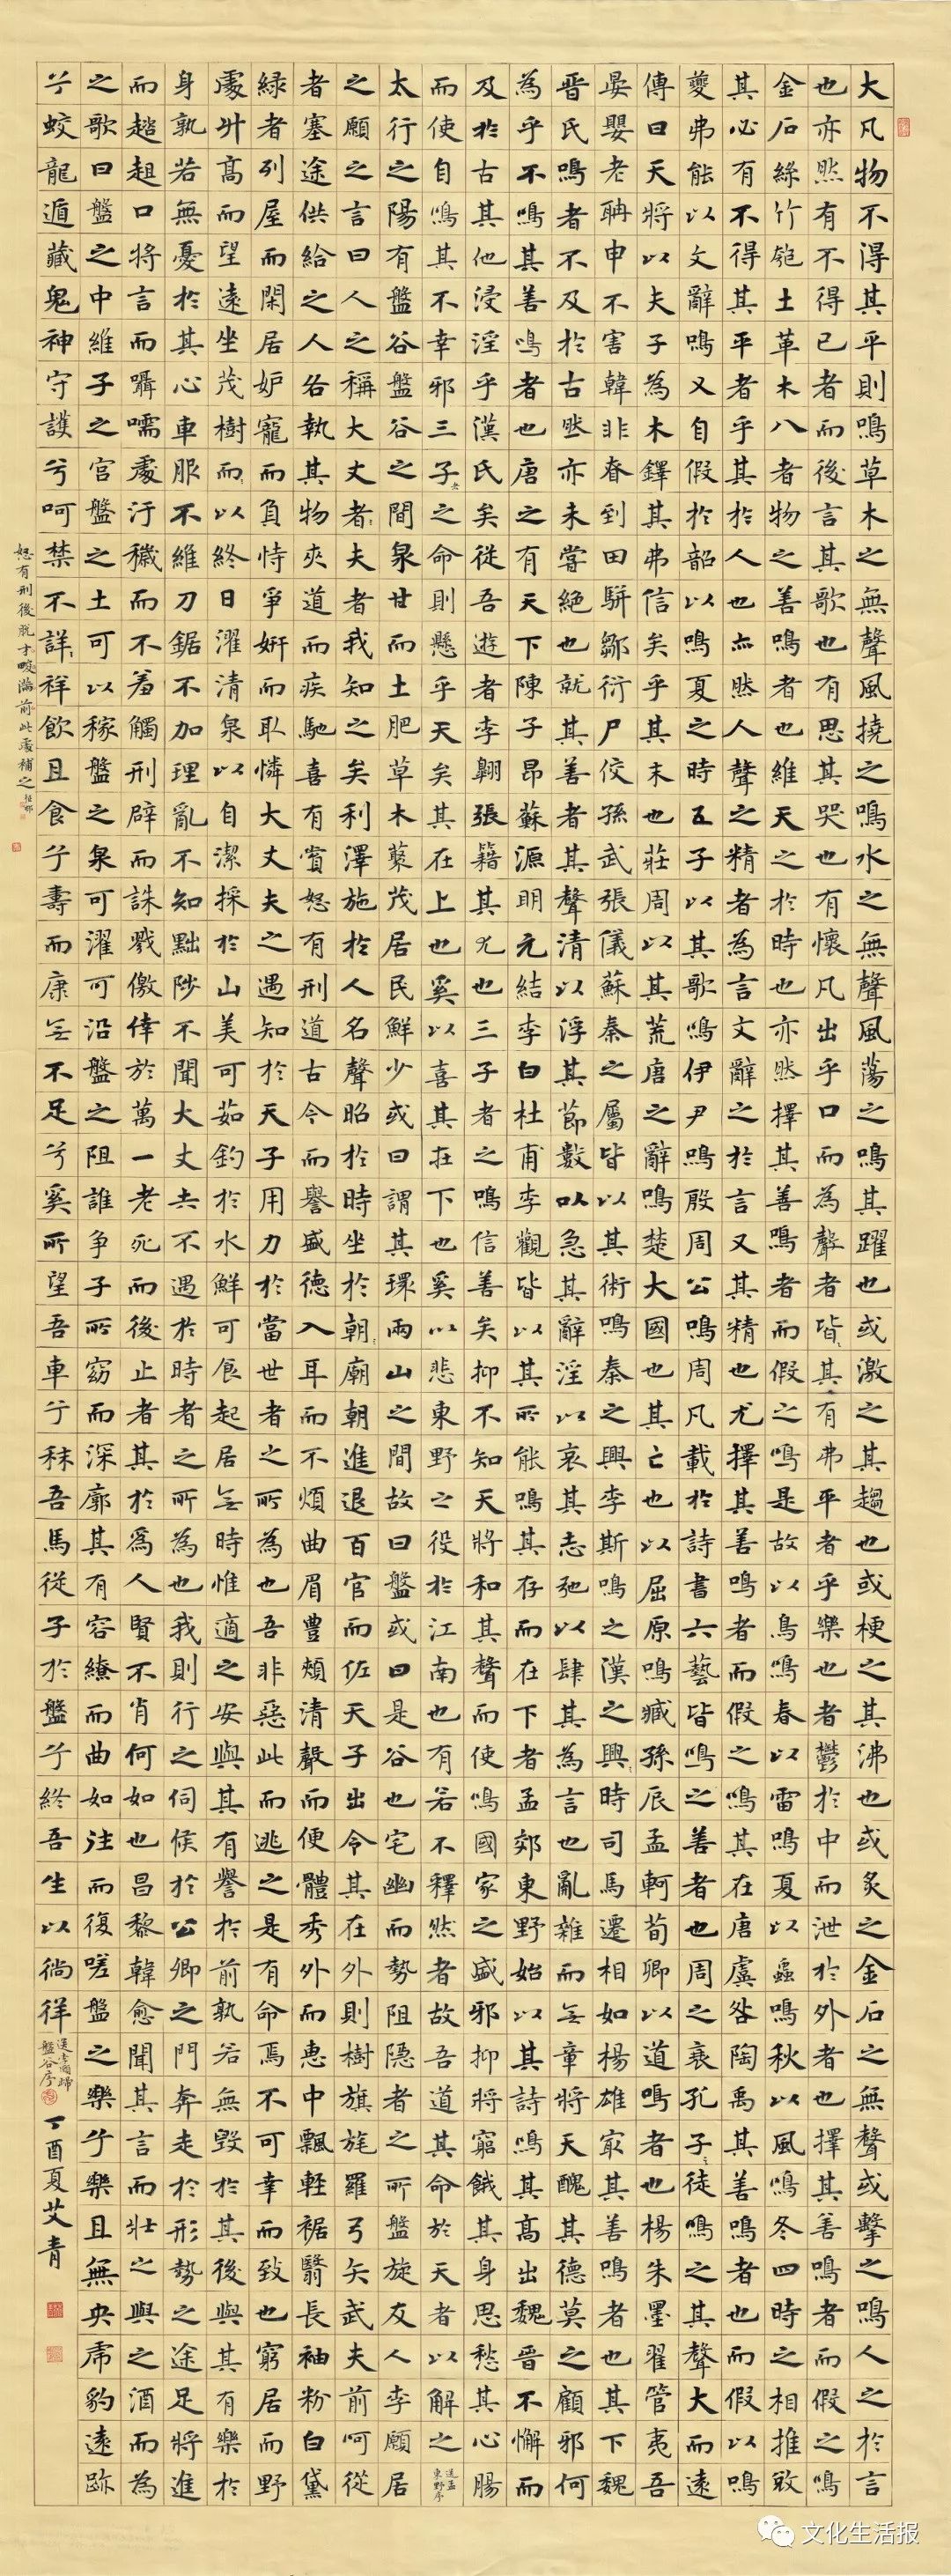 大凡物不得其平則鳴草木之無聲風撓之鳴水之無聲風蕩之鳴其躍也或激之其趨也或梗之其沸也或炙之金石之無聲或擊之鳴人之於言
也亦然有不得已者而後言其歌也有思其哭也有懷凡出乎口而為聲者皆其有弗平者乎樂也者鬱於中而泄於外者也擇其善鳴者而假之鳴
金石絲竹匏土革木八者物之善鳴者也維天之於時也亦然擇其善鳴者而假之鳴是故以鳥鳴春以雷鳴夏以蟲鳴秋以風鳴冬四時之相推敚
其必有不得其平者乎其於人也亦然人聲之精者為言文辭之於言又其精也尤擇其善鳴者而假之鳴其在唐虞咎陶禹其善鳴者也而假以鳴
夔弗能以文辭鳴又自假於韶以鳴夏之時五子以其歌鳴伊尹鳴殷周公鳴周凡載於詩書六藝皆鳴之善者也周之衰孔子徒鳴之其聲大而遠
傳曰天將以夫子為木鐸其弗信矣乎其末也莊周以其荒唐之辭鳴楚大國也其亡也以屈原鳴臧孫辰孟軻荀卿以道鳴者也楊朱墨翟管夷吾
晏嬰老聃申不害韓非眘到田駢鄒衍尸佼孫武張儀蘇秦之屬皆以其術鳴秦之興李斯鳴之漢之興時司馬遷相如楊雄最其善鳴者也其下魏
晉氏鳴者不及於古然亦未嘗絕也就其善者其聲清以浮其節數以急其辭淫以哀其志弛以肆其為言也亂雜而無章將天醜其德莫之顧邪何
為乎不鳴其善鳴者也唐之有天下陳子昂蘇源明元結李白杜甫李觀皆以其所能鳴其存而在下者孟郊東野始以其詩鳴其高出魏晉不懈而
及於古其他浸淫乎漢氏矣從吾遊者李翱張籍其尤也三子者之鳴信善矣抑不知天將和其聲而使鳴國家之盛邪抑將窮餓其身思愁其心腸
而使自鳴其不幸邪三子之命則懸乎天矣其在上也奚以喜其在下也奚以悲東野之役於江南也有若不釋然者故吾道其命於天者以解之
送孟東野序
太行之陽有盤谷盤谷之間泉甘而土肥草木藂茂居民鮮少或曰謂其環兩山之間故曰盤或曰是谷也宅幽而勢阻隱者之所盤旋友人李願居
之願之言曰人之稱大丈者夫者我知之矣利澤施於人名聲昭於時坐於朝廟朝進退百官而佐天子出令其在外則樹旗旄羅弓矢武夫前呵從
者塞途供給之人各執其物夾道而疾馳喜有賞怒有刑道古今而譽盛德入耳而不煩曲眉豐頰清聲而便體秀外而惠中飄輕裾翳長袖粉白黛
緑者列屋而閑居妒寵而負恃爭妍而取憐大丈夫之遇知於天子用力於當世者之所為也吾非惡此而逃之是有命焉不可幸而致也窮居而野
處升高而望遠坐茂樹而以終日濯清泉以自潔採於山美可茹釣於水鮮可食起居無時惟適之安與其有譽於前孰若無毀於其後與其有樂於
身孰若無憂於其心車服不維刀鋸不加理亂不知黜陟不聞大丈夫不遇於時者之所為也我則行之伺候於公卿之門奔走於形勢之途足將進
而趑趄口將言而囁嚅處汙穢而不羞觸刑辟而誅戮僥倖於萬一老死而後止者其於為人賢不肖何如也昌黎韓愈聞其言而壯之與之酒而為
之歌曰盤之中維子之宮盤之土可以稼盤之泉可濯可沿盤之阻誰爭子所窈而深廓其有容繚而曲如注而復嗟盤之樂兮樂且無央虎豹遠跡
兮蛟龍遁藏鬼神守護兮呵禁不詳祥飲且食兮壽而康無不足兮奚所望吾車兮秣吾馬從子於盤兮終吾生以徜徉
送李愿歸盤谷序
丁酉夏艾青
怒有刑後就才畯滿前此處補之
文化生活报